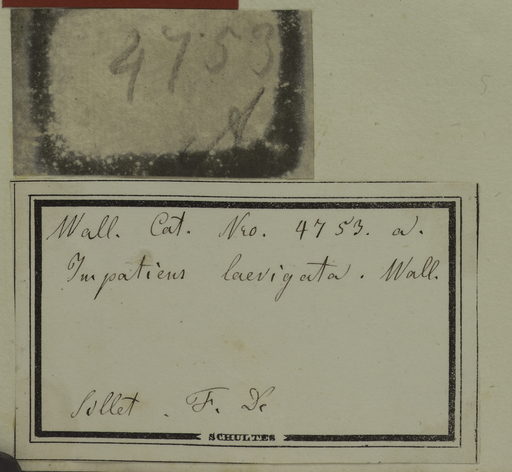 4753
A
Wall. Cat. Nro. 4753. a.
Impatiens laevigata. Wall.
Sillet. F. De
SCHULTES